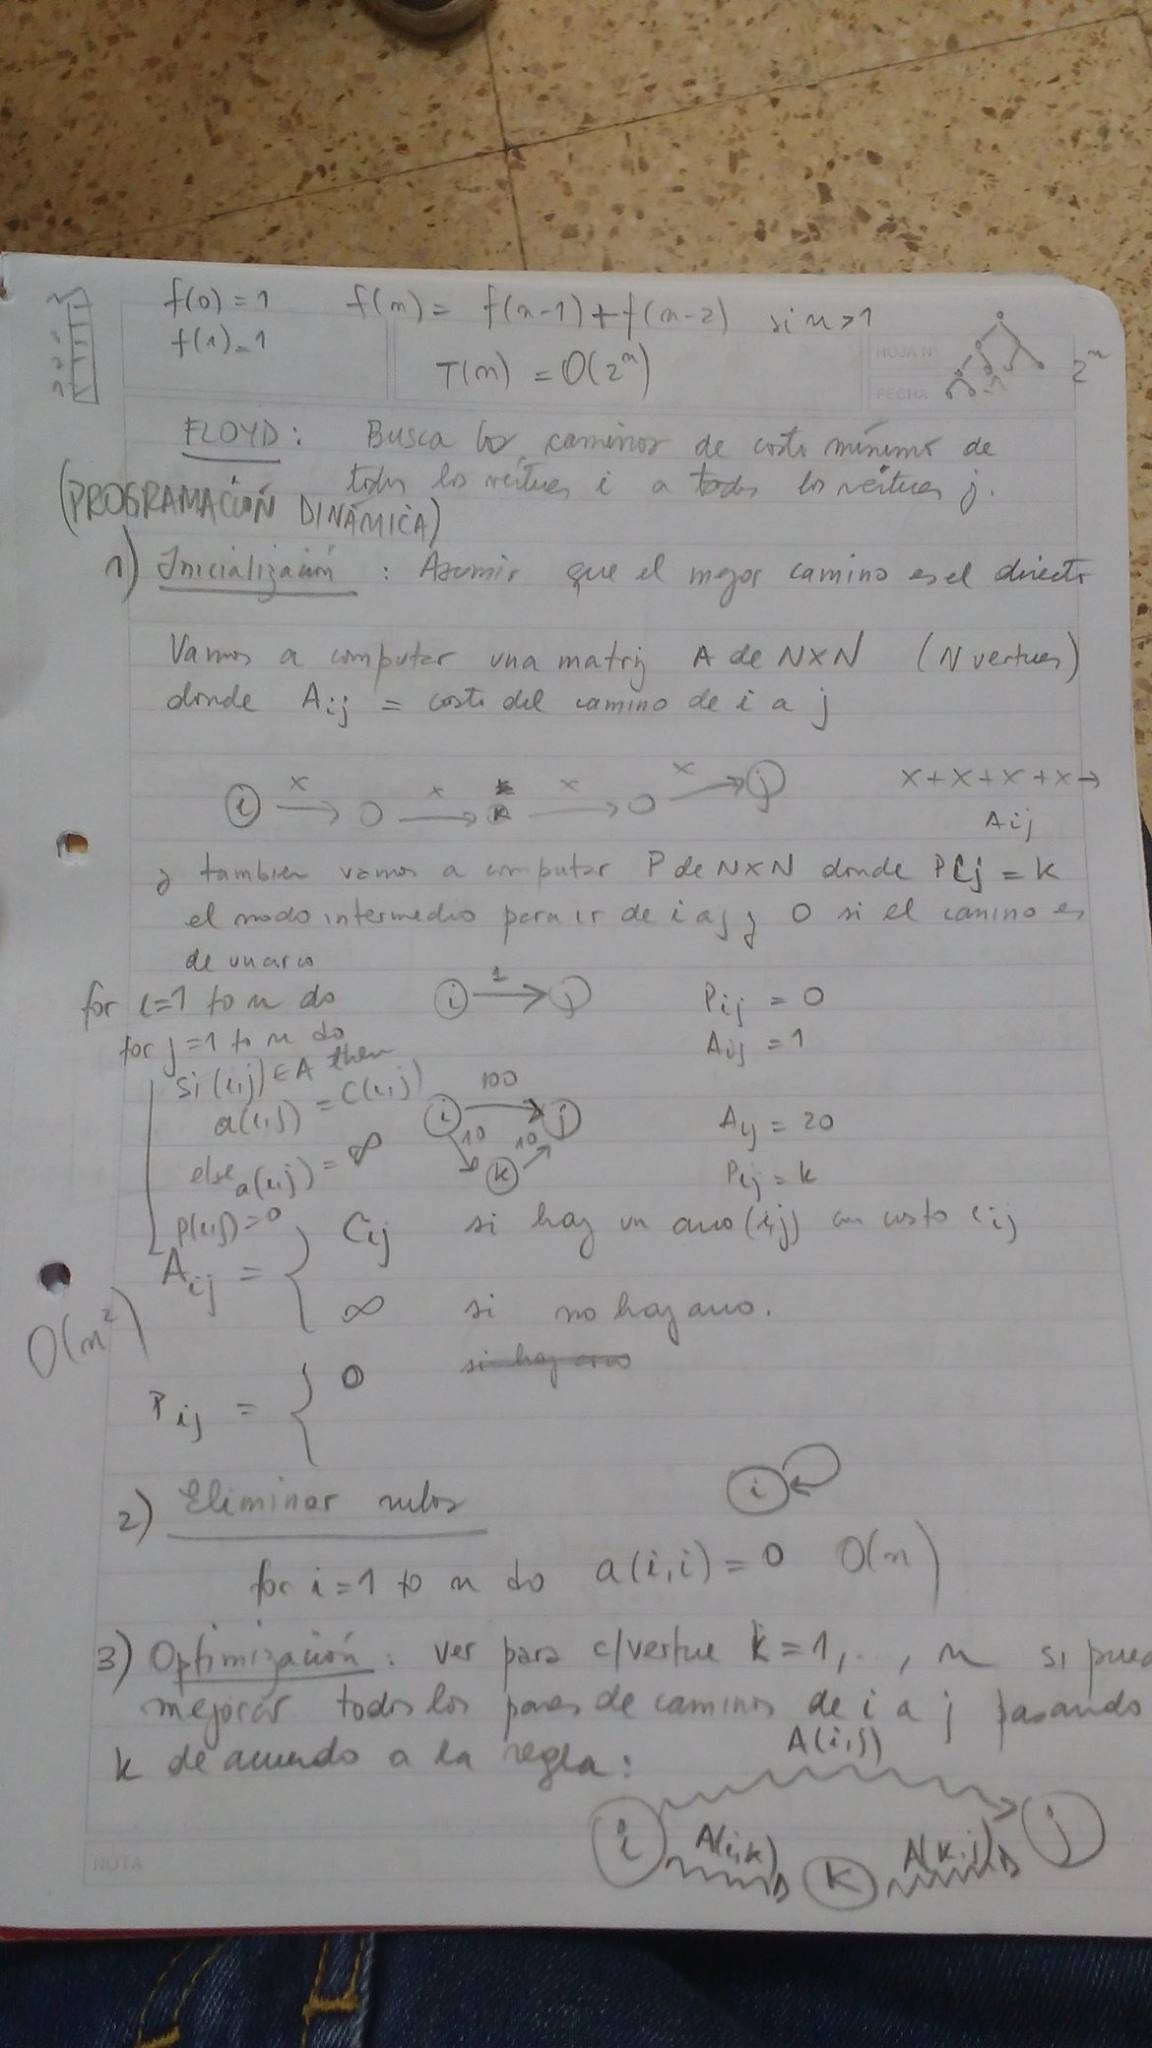 f(0) = 1 f(n) = f(n-1) + f(n-2) si n > 1
f(1) = 1
T(n) = O(2^n) 2^n
HOJA Nº
FECHA
FLOYD: Busca los caminos de costo mínimo de
todos los vértices i a todos los vértices j.
(PROGRAMACIÓN DINÁMICA)
1) Inicialización: Asumir que el mejor camino es el directo
Vamos a computar una matriz A de NXN (N vertices)
donde Aij = costo del camino de i a j
i x x k x x j x+x+x+x→
Aij
y tambien vamos a computar P de NXN donde Pij = k
el nodo intermedio para ir de i a j y 0 si el camino es
de un arco
for i=1 to n do i 1 j Pij = 0
for j=1 to n do Aij = 1
si (i,j) ∈ A then
a(i,j) = C(i,j) i 100 j Aij = 20
else a(i,j) = ∞ 10 k 10 Pij = k
p(i,j)=0
Aij = { Cij si hay un arco (i,j) con costo cij
∞ si no hay arco.
O(n²)
Pij = { 0 si hay arco
2) Eliminar rulos i
for i=1 to n do a(i,i) = 0 O(n)
3) Optimización: ver para c/vertice k=1,..., n si
mejorar todos los pares de caminos de i a j pasando
k de acuerdo a la regla:
A(i,j)
i A(i,k) k A(k,j) j
NOTA